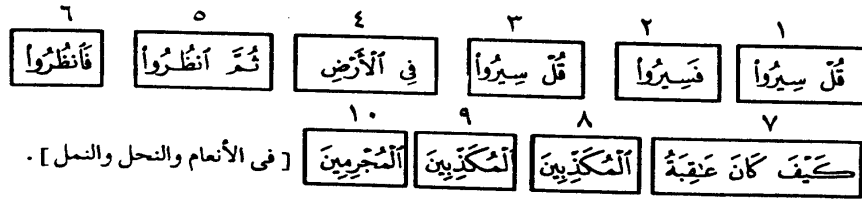 ١ ٢ ٣ ٤ ٥ ٦
قُلْ سِيرُواْ فَسِيرُواْ قُلْ سِيرُواْ فِي ٱلْأَرْضِ ثُمَّ ٱنظُرُواْ فَٱنظُرُواْ
٧ ٨ ٩ ١٠
كَيْفَ كَانَ عَٰقِبَةُ ٱلْمُكَذِّبِينَ ٱلْمُكَذِّبِينَ ٱلْمُجْرِمِينَ [ فى الأنعام والنحل والنمل ] .